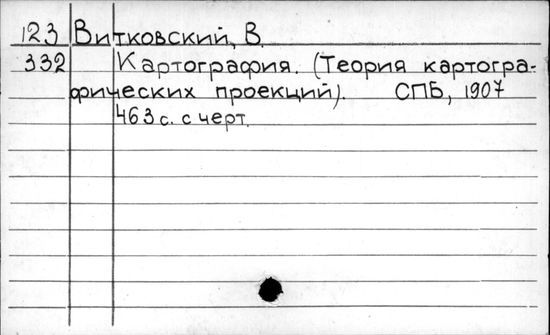 123 Витковский, В.
332 Картография. (Теория картогра-
фических проекций). СПБ, 1907
463 с. с черт.